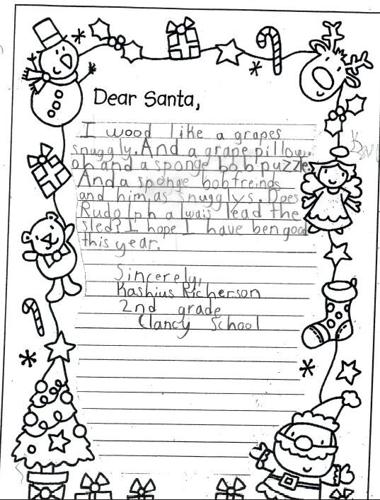 Dear Santa,
I wood like a grapes
snuggly. And a grape pillow.
oh and a sponge bob puzzle
And a sponge bob freinds
and him as snugglys. Does
Rudolph a lead the
sled? I hope I have ben good
this year.
Sincerely,
Kashius Richerson
2nd grade
Clancy School